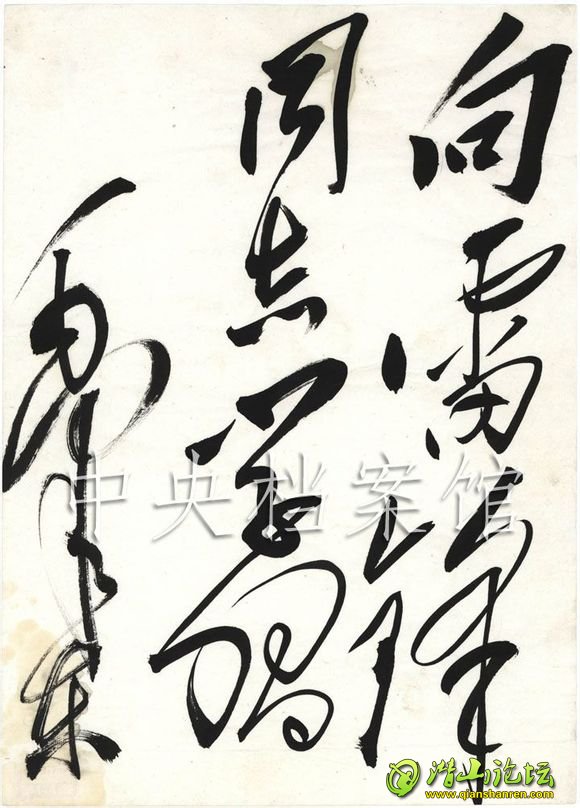 向雷锋
同志学习
毛泽东
中央档案馆
潜山论坛
www.qianshanren.com